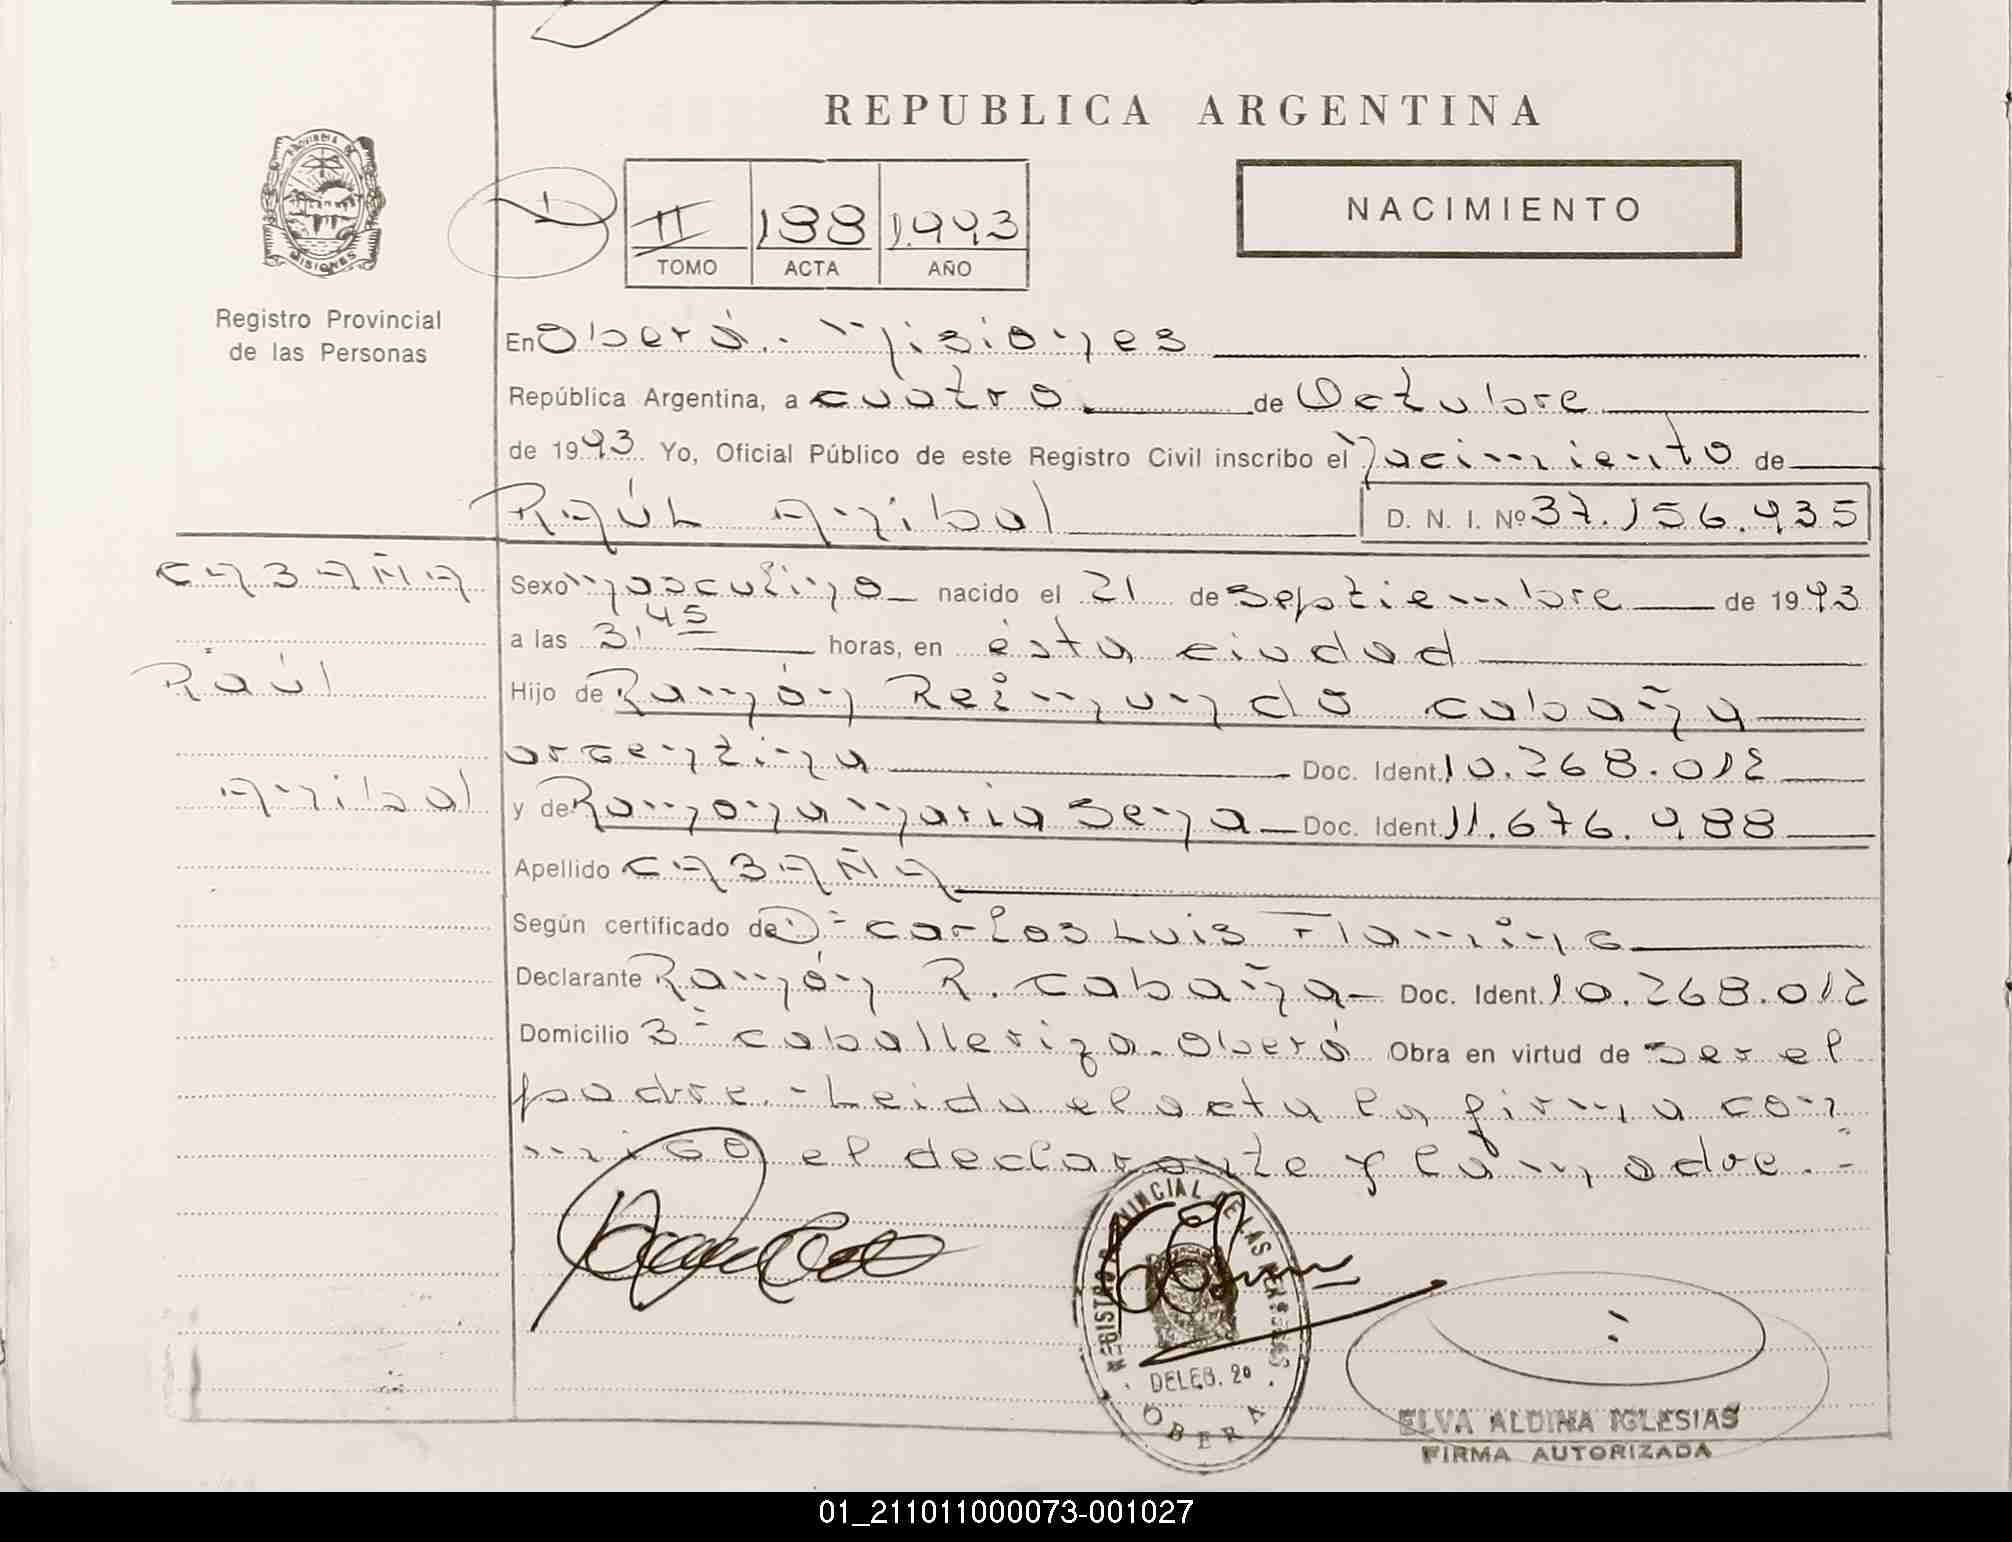 REPUBLICA ARGENTINA
PROVINCIA DE
MISIONES
II 188 1.993
TOMO ACTA AÑO
NACIMIENTO
Registro Provincial
de las Personas
En Oberá.- Misiones
República Argentina, a cuatro de Octubre
de 1993 Yo, Oficial Público de este Registro Civil inscribo el Nacimiento de
RAÚL Anibal D. N. I. Nº 37.156.935
CABAÑA
Raúl
Anibal
Sexo masculino nacido el 21 de Septiembre de 1993
a las 3,45 horas, en ésta ciudad
Hijo de Ramón Reimundo Cabaña
argentina Doc. Ident. 10.268.012
y de Ramona Maria Sena Doc. Ident. 11.676.988
Apellido CABAÑA
Según certificado de Dr Carlos Luis Flaming
Declarante Ramón R. Cabaña Doc. Ident. 10.268.012
Domicilio 3º Caballeriza. Oberá Obra en virtud de ser el
padre.- Leida el acta la firma con
migo el declarante y la madre.-
REGISTRO PROVINCIAL DE LAS PERSONAS
DELEG. 2º
OBERA
ELVA ALDINA IGLESIAS
FIRMA AUTORIZADA
01_211011000073-001027